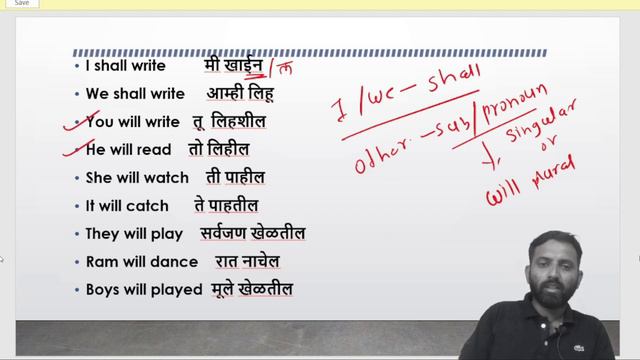 Save
I shall write मी खाईन / ल
We shall write आम्ही लिहू
You will write तू लिहशील
He will read तो लिहील
She will watch ती पाहील
It will catch ते पाहतील
They will play सर्वजण खेळतील
Ram will dance रात नाचेल
Boys will played मूले खेळतील
I / we - shall
Other - sub / pronoun
singular
or
will plural